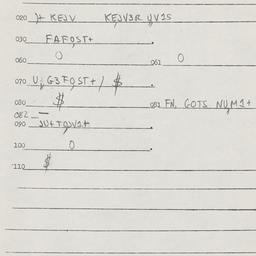 020 KEJV KEJV3R YV15
030 FAFOST+
060 0 061 0
070 U; G3FOST+ / $
080 $ 081 FN. GOTS NUM1+
082 —
090 JU+TOJV1+
100 0
110 $